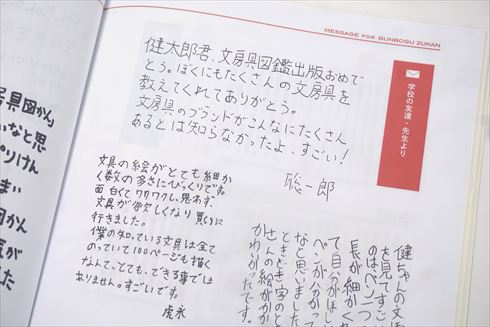 MESSAGE FOR BUNBOGU ZUKAN
学校の友達・先生より
健太郎君、文房具図鑑出版おめで
とう。ぼくにもたくさんの文房具を
教えてくれてありがとう。
文房具のブランドがこんなにたくさん
あるとは知らなかったよ、すごい!
聡一郎
文具の絵がとても細か
く数の多さにびっくりです。
面白くてワクワクし、思わず、
文具が欲しくなり 買いに
行きました。
僕の知っている文具は全て
のっていて100ページも描く
なんて、とても、できる事では
ありません。すごいです。
虎永
健ちゃんの文
を見てすご
のはペン
長が細かく
て自分がほし
ペンが分かっ
なと思いました
ときどき字のと
さんの絵がかか
かわいかったです。
房具図かん
いなと思
ぺりけん
まい
図かん